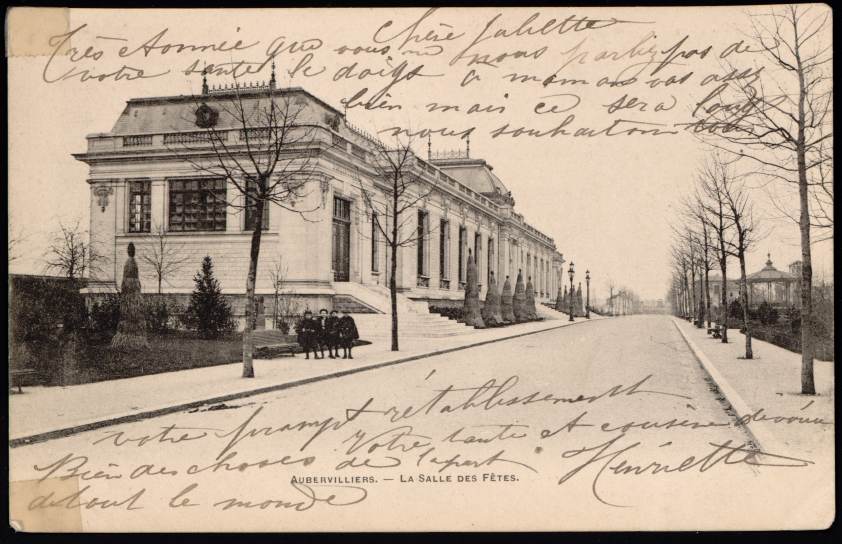 Chère Juliette
Très étonnée que vous nous parliez pas de
votre santé le doigt à maman vas assez
bien mais ce sera long
nous souhaitons tous
votre prompt rétablissement
Votre tante et cousine dévouée
Henriette
Bien des choses de la part
de tout le monde
AUBERVILLIERS. — LA SALLE DES FÊTES.